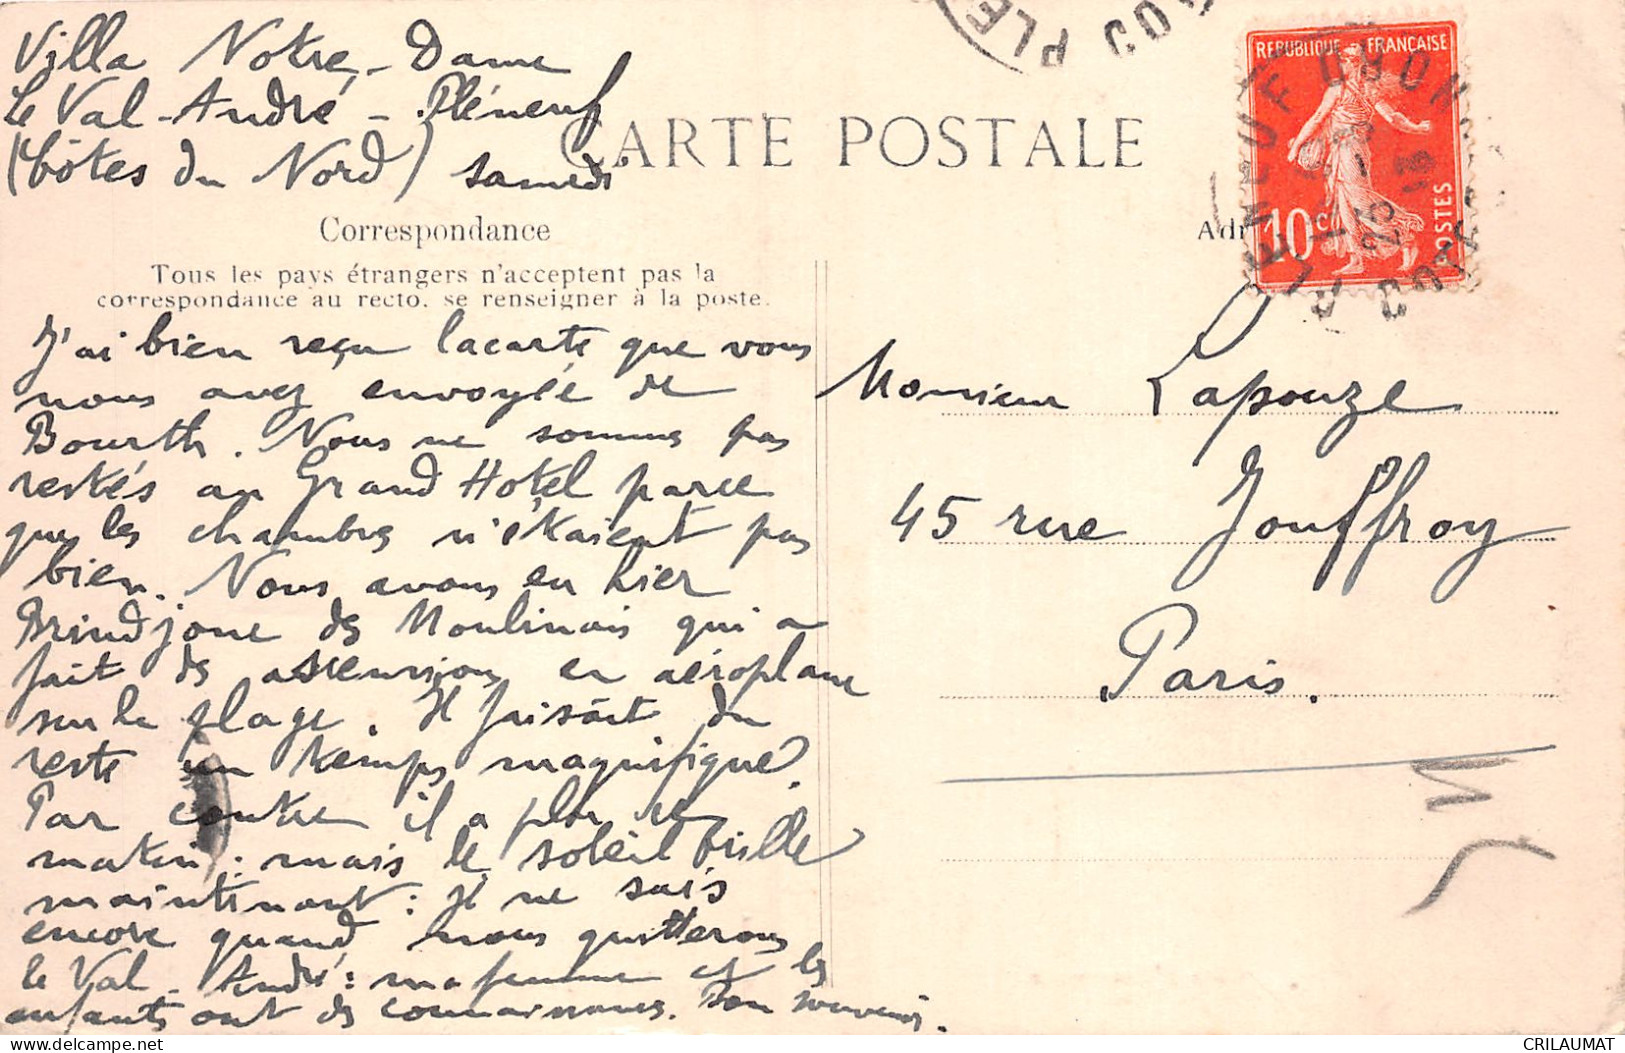 Villa Notre-Dame
Le Val-André - Pléneuf
(Côtes du Nord) samedi
CARTE POSTALE
Correspondance
Tous les pays étrangers n'acceptent pas la
correspondance au recto. se renseigner à la poste.
J'ai bien reçu la carte que vous
nous avez envoyée de
Bourth. Nous ne sommes pas
restés au Grand Hôtel parce
que les chambres n'étaient pas
bien. Nous avons eu hier
Brindjonc des Moulinais qui a
fait des ascensions en aéroplane
sur la plage. Il faisait du
reste un temps magnifique.
Par contre il a plu ce
matin : mais le soleil brille
maintenant : Je ne sais
encore quand nous quitterons
le Val-André : ma femme et les
enfants ont des connaissances. Bon souvenir.
REPUBLIQUE FRANÇAISE
10c
POSTES
PLENEUF
COTES-DU-NORD
23 -8 13
Adr
Monsieur Lapouze
45 rue Jouffroy
Paris.
CRILAUMAT